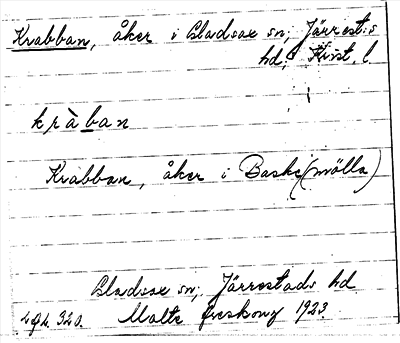 Krabban, åker i Gladsax sn; Järrest:s
hd; Krist. l
kràban
Krabban, åker i Baske(mölla)
Gladsax sn; Järrestads hd
Malte 1923